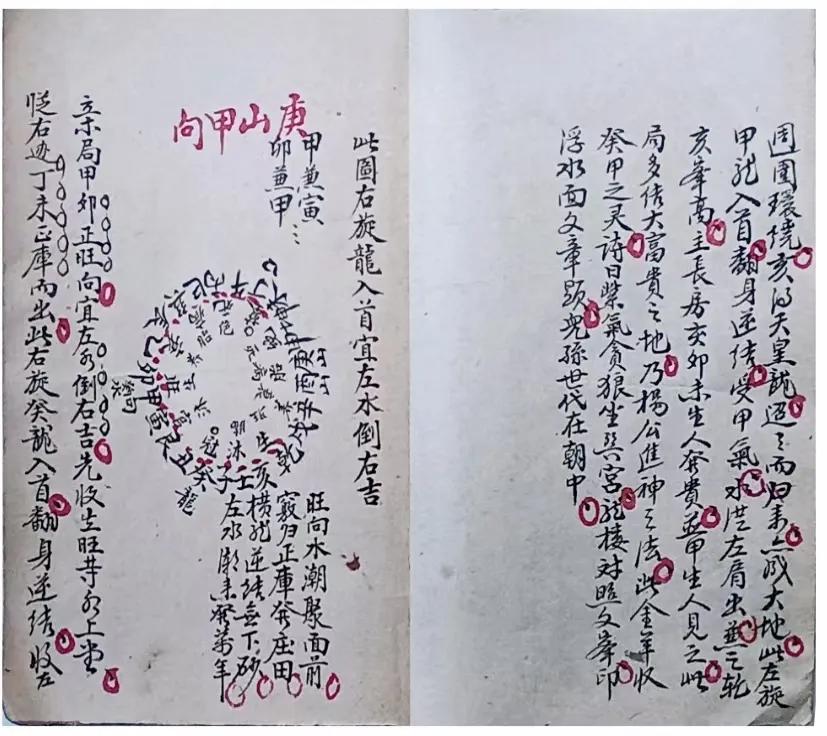 週圍環繞亥為天皇龍迢ミ而归来亦成大地此左旋
甲龍入首翻身逆结受甲氣水從左肩出
亥峯高主長房亥卯未生人發貴並甲生人見之此
局多结大富貴之地乃楊公進神之法此金羊收
癸甲之灵詩曰紫氣貪狼坐宮龍楼对照文峯印
浮水面文章顕児孫世代在朝中
此圖右旋龍入首宜左水倒右吉
庚山甲向
甲兼寅
卯兼甲
旺向水潮聚面前
竅归正庫發庄田
横龍逆结無下砂
左水潮来發萬年
亥壬子癸丑艮寅甲卯乙辰巽巳丙午丁
龍
立木局甲卯正旺向宜左水倒右吉先收生旺等水上堂
從右边丁未正庫而出此右旋癸龍入首翻身逆结收左